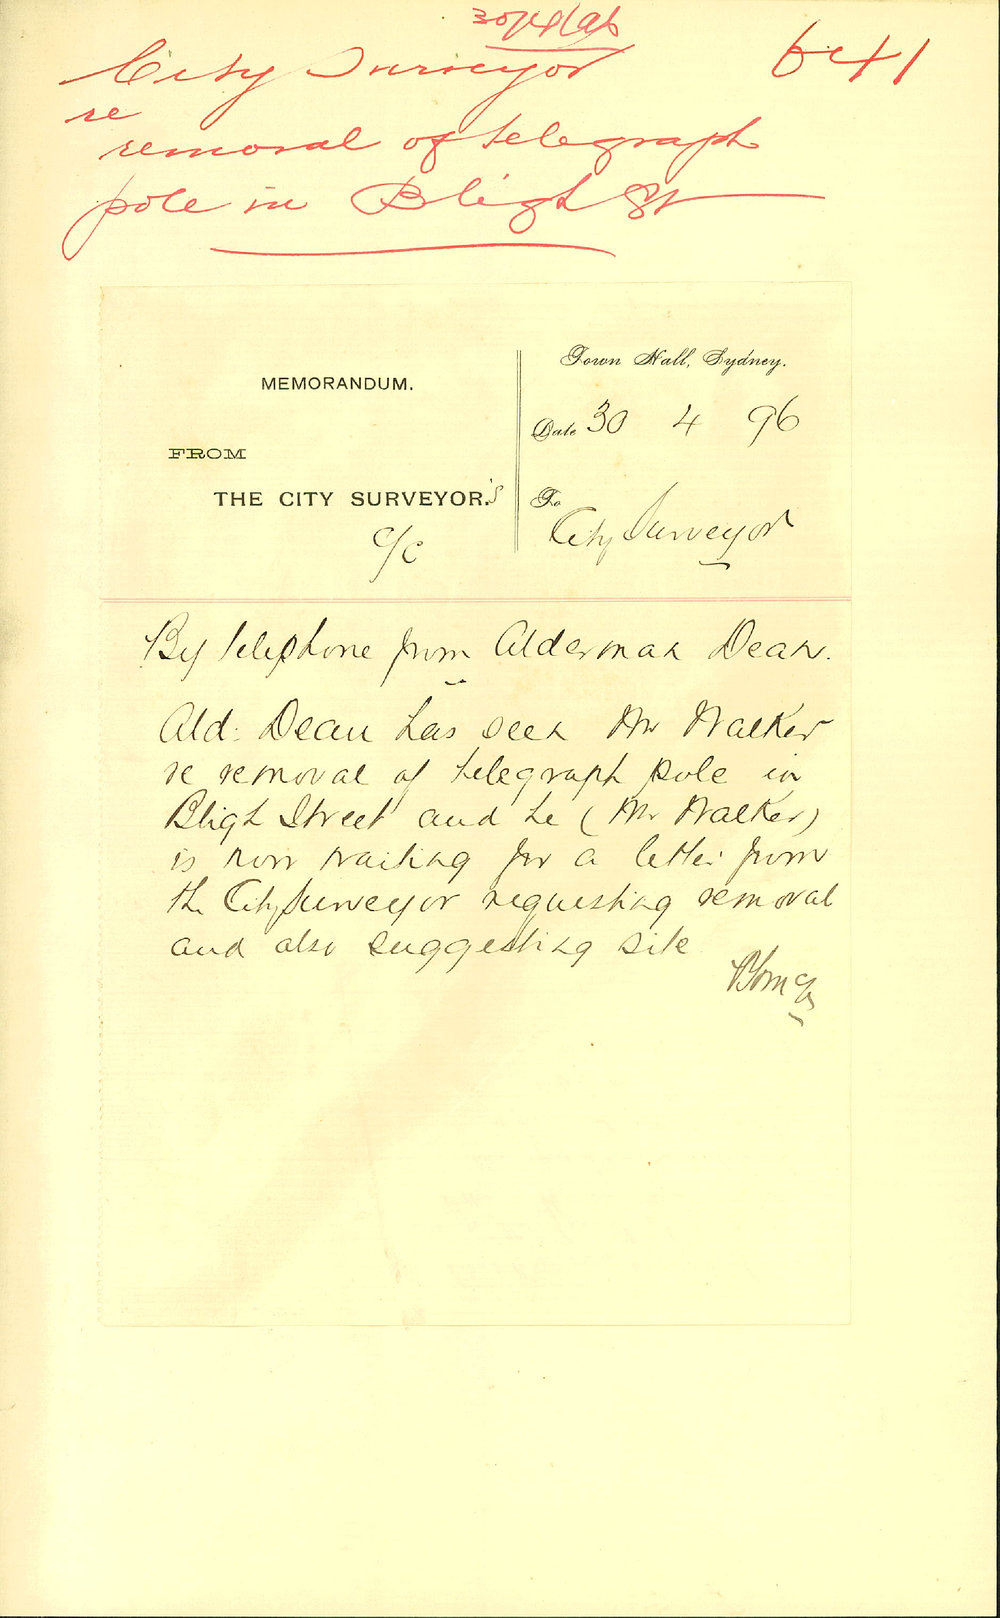 30/4/96
City Surveyor
641
re
removal of telegraph
pole in Bligh St
Town Hall, Sydney.
MEMORANDUM.
Date 30 4 96
FROM
THE CITY SURVEYOR.'s
To
City Surveyor
C/C
By telephone from Alderman Dean.
Ald: Dean has seen Mr Walker
re removal of telegraph pole in
Bligh Street and he (Mr Walker)
is now waiting for a letter from
the City Surveyor requesting removal
and also suggesting site